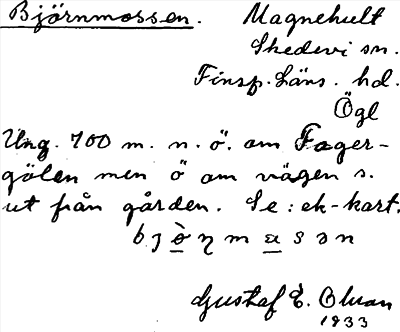 Björnmossen. Magnehult
Skedevi sn.
Finsp. läns. hd.
Ögl
Ung. 700 m. n. ö. om Fager-
gölen men ö om vägen s.
ut från gården. Se: ek-kart.
Gustaf E. Olsson
1933